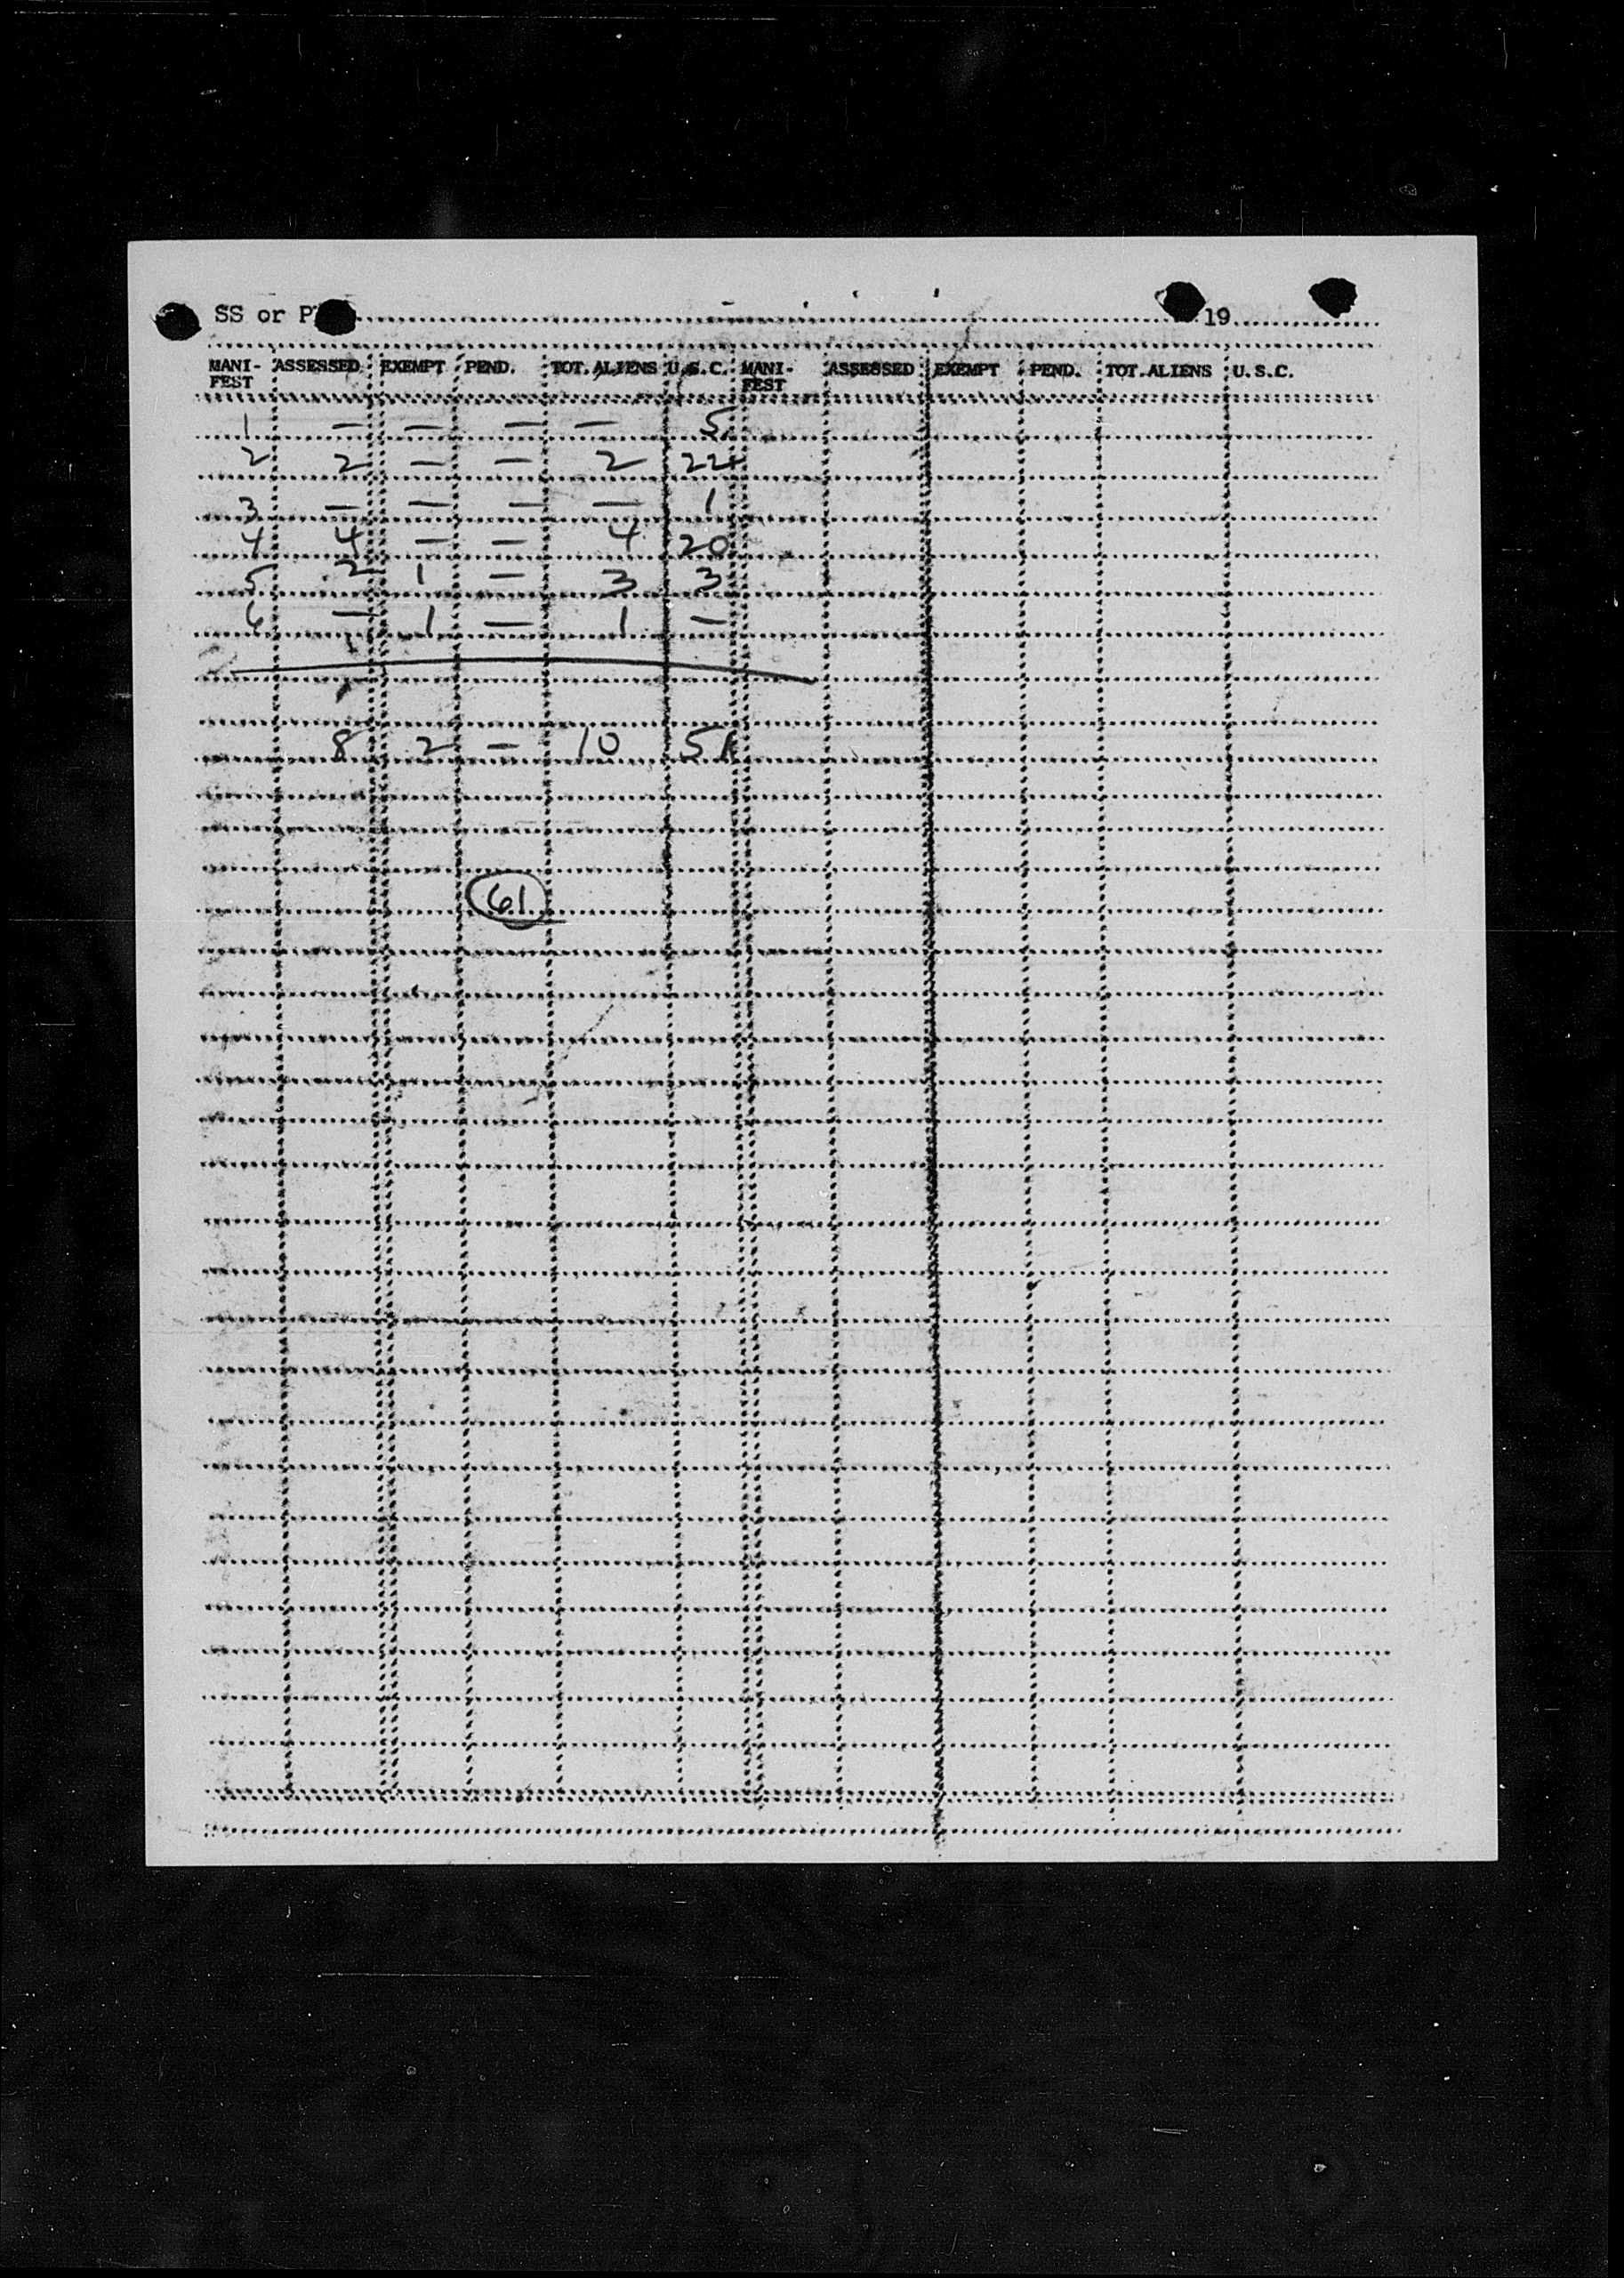 SS or P 19
MANI-FEST ASSESSED EXEMPT PEND. TOT. ALIENS U.S.C. MANI-FEST ASSESSED EXEMPT PEND. TOT. ALIENS U.S.C.
1 — — — — 5
2 2 — — 2 22
3 — — — — 1
4 4 — — 4 20
5 2 1 — 3 3
6 — 1 — 1 —
8 2 — 10 51
61